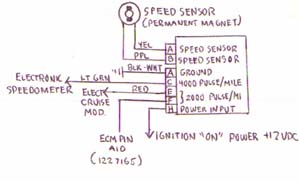 SPEED SENSOR
(PERMANENT MAGNET)
YEL A SPEED SENSOR
PPL B SPEED SENSOR
BLK-WHT A GROUND
ELECTRONIC SPEEDOMETER LT GRN C 4000 PULSE/MILE
ELECT CRUISE MOD. RED E } 2000 PULSE/MI
F
H POWER INPUT
ECM PIN
A10
(1227165)
IGNITION "ON" POWER +12VDC